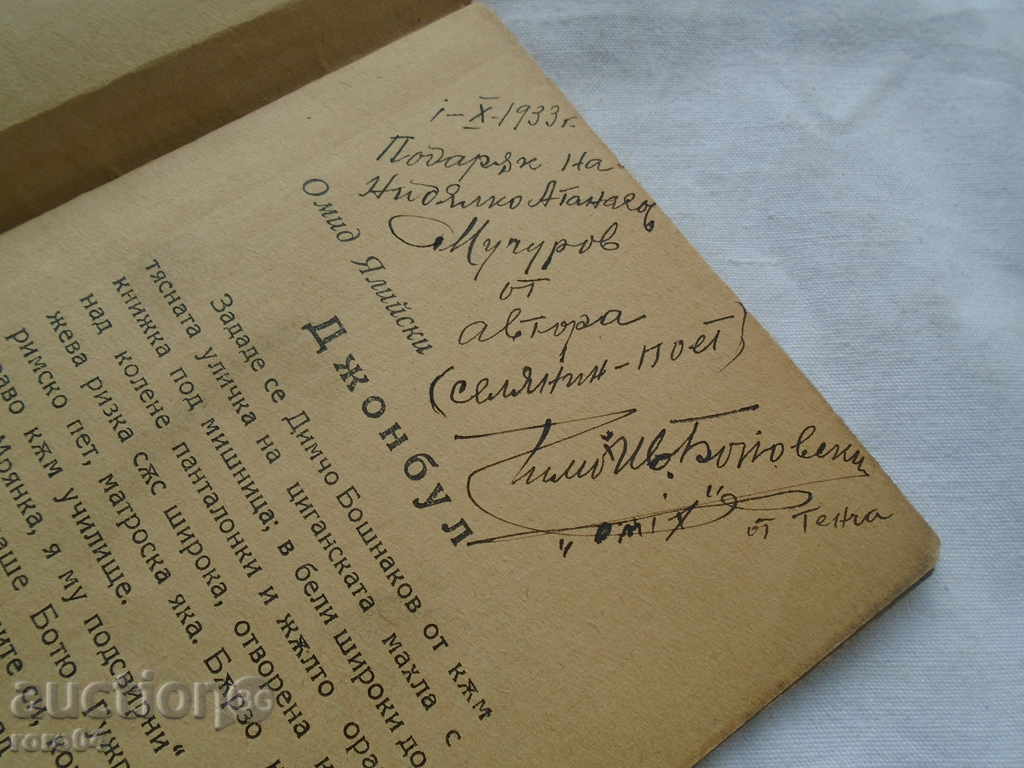 i-X-1933 г.
Подарях на
Нидялко Атанасовъ
Мучуров
от
автора
(селянин-поет)
Ив.
"omix"
от Тенча
Омид Ялийски
Джонбул
Зададе се Димчо Бошнаков от към
тясната уличка на циганската махла с
книжка под мишница; в бели широки до
над колене панталонки и жѫлто
жева ризка сѫс широка, отворена
римско пет, матроска яка. Бѫрзо
кѫм училище.
Мрянка, я му подсвирни"
Ботю
auction.bg
rora64